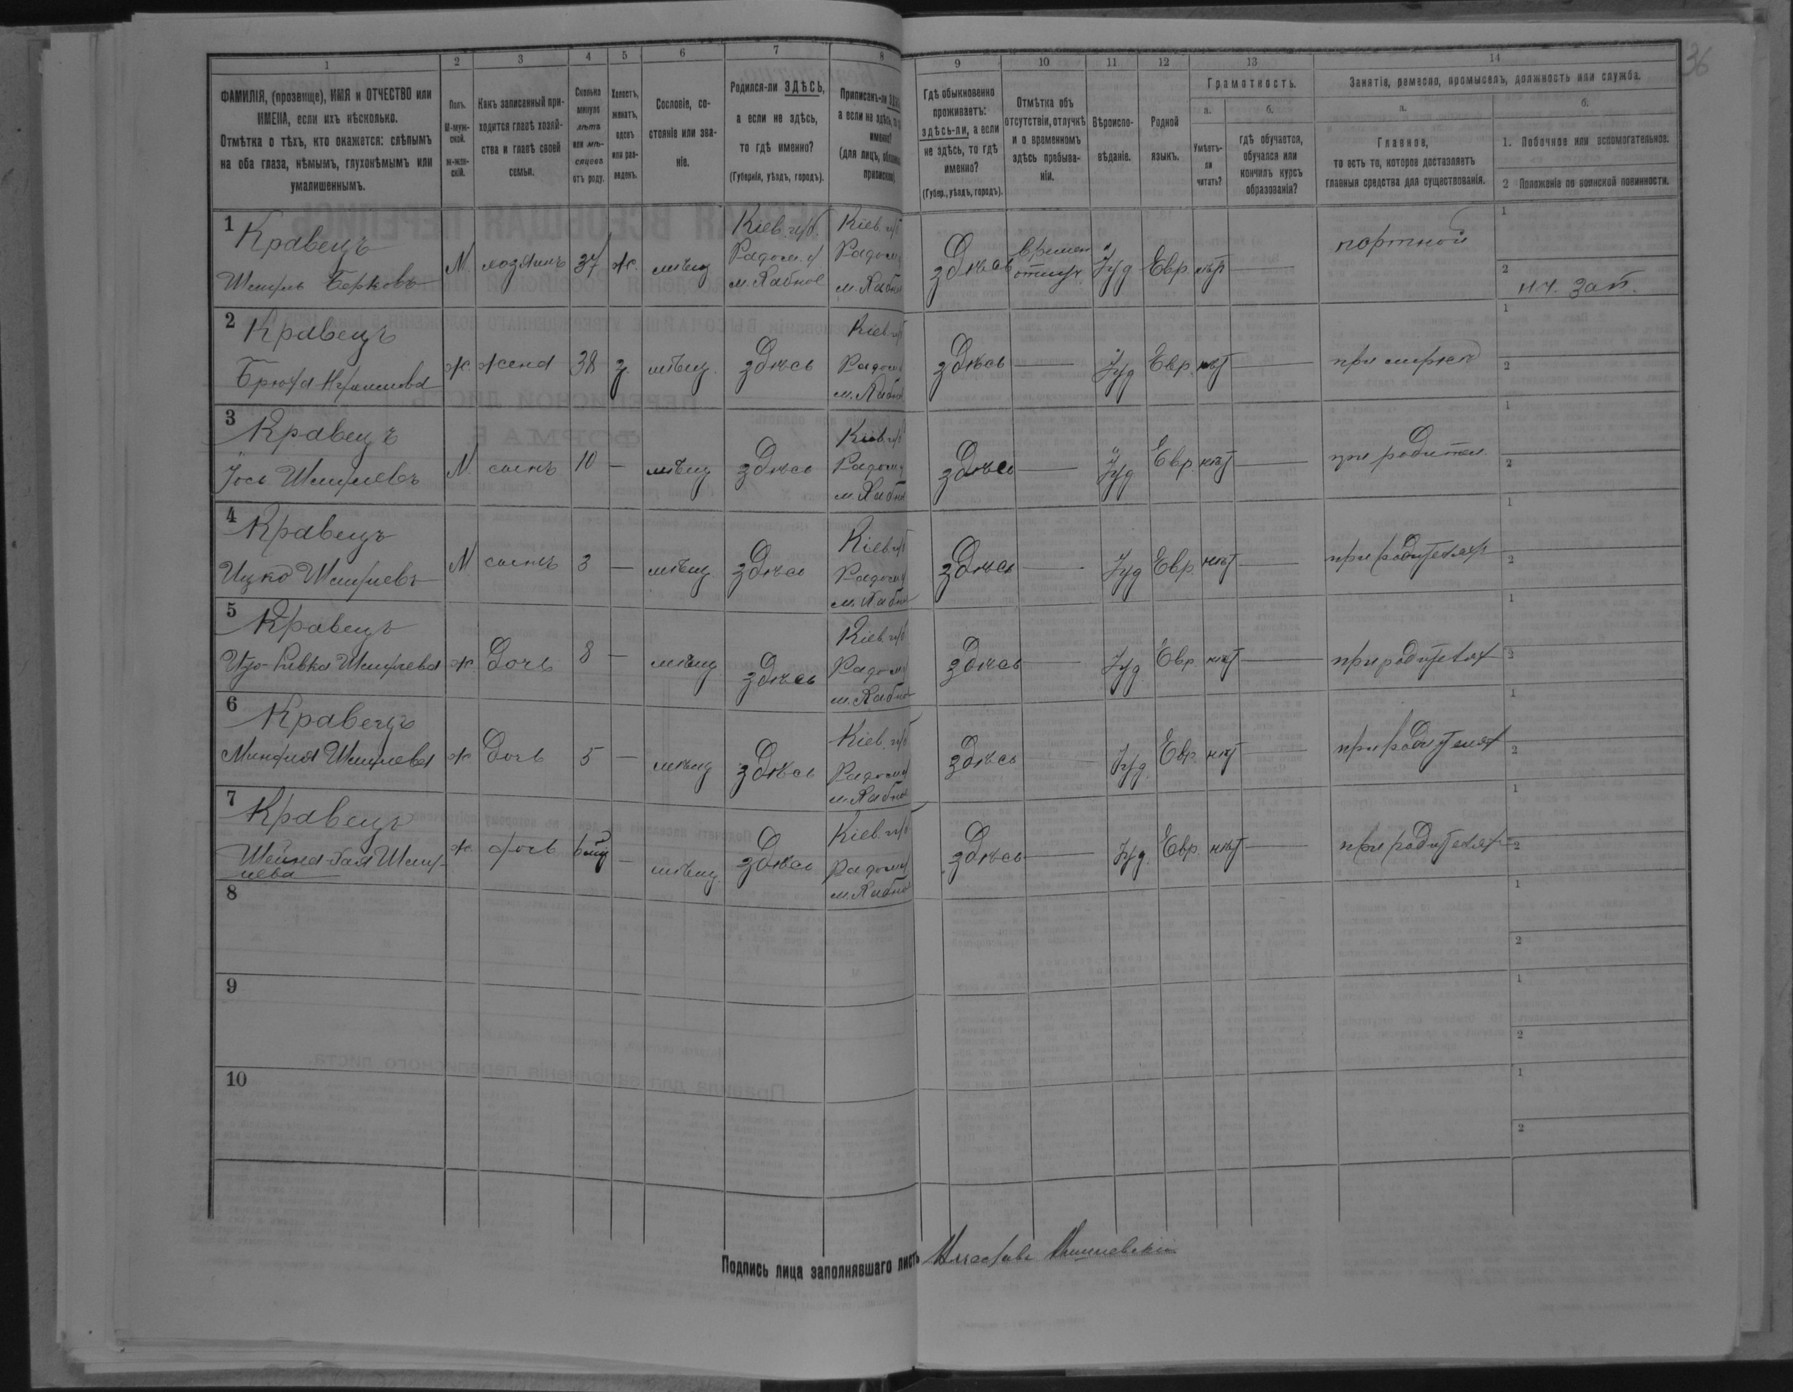 36
1 2 3 4 5 6 7 8 9 10 11 12 13 14
ФАМИЛІЯ, (прозвище), ИМЯ и ОТЧЕСТВО или
ИМЕНА, если ихъ нѣсколько.
Отмѣтка о тѣхъ, кто окажется: слѣпымъ
на оба глаза, нѣмымъ, глухонѣмымъ или
умалишеннымъ.
Полъ.
М-муж-
ской.
ж-жен-
скій.
Какъ записанный при-
ходится главѣ хозяй-
ства и главѣ своей
семьи.
Сколько
минуло
лѣтъ
или мѣ-
сяцевъ
отъ роду.
Холостъ,
женатъ,
вдовъ
или раз-
веденъ.
Сословіе, со-
стояніе или зва-
ніе.
Родился-ли ЗДѢСЬ,
а если не здѣсь,
то гдѣ именно?
(Губернія, уѣздъ, городъ).
Приписанъ-ли
а если не здѣсь,
именно?
(для лицъ,
Гдѣ обыкновенно
проживаетъ:
здѣсь-ли, а если
не здѣсь, то гдѣ
именно?
(Губер., уѣздъ, городъ).
Отмѣтка объ
отсутствіи, отлучкѣ
и о временномъ
здѣсь пребыва-
ніи.
Вѣроиспо-
вѣданіе.
Родной
языкъ.
Грамотность.
а.
Умѣетъ-
ли
читать?
б.
гдѣ обучается,
обучался или
кончилъ курсъ
образованія?
Занятіе, ремесло, промыселъ, должность или служба.
а.
Главное,
то есть то, которое доставляетъ
главныя средства для существованія.
б.
1. Побочное или вспомогательное.
2 Положеніе по воинской повинности.
1 Кравецъ
Шмуль Берковъ
М. хозяинъ 37 ж. мѣщ
Кіев. губ.
Радом. у
м. Хабное
Кіев. губ
Радом у
м. Хабно
здѣсь
Времен
отлуч
Іуд Евр. нѣт — портной
1
2 нч. зап.
2 Кравецъ
ж жена 38 з. мѣщ. здѣсь
Кіев. губ
Радом
м. Хабно
здѣсь — Іуд Евр. нѣт — при мужѣ
1
2
3 Кравецъ
Іось Шмулевъ
М. сынъ 10 — мѣщ здѣсь
Кіев губ
Радом у
м. Хабно
здѣсь — Іуд Евр. нѣт — при родител.
1
2
4 Кравецъ
Ицко Шмулевъ
М сынъ 3 — мѣщ. здѣсь
Кіев. губ
Радом у
м. Хабно
здѣсь — Іуд Евр. нѣт — при родителях
1
2
5 Кравецъ
Ривка Шмулева
ж. дочь 8 — мѣщ. здѣсь
Кіев. губ
Радом у
м. Хабно
здѣсь — Іуд Евр нѣт — при родителях
1
2
6 Кравецъ
Шмулева
ж дочь 5 — мѣщ здѣсь
Кіев. губ
Радом у
м. Хабно
здѣсь — Іуд. Евр. нѣт — при родителях
1
2
7 Кравецъ
Шейна Хая Шму-
лева
ж. дочь — мѣщ. здѣсь
Кіев. губ
Радом у
м. Хабно
здѣсь — Іуд. Евр. нѣт — при родителях
1
2
8
1
2
9
1
2
10
1
2
Подпись лица заполнявшаго листъ